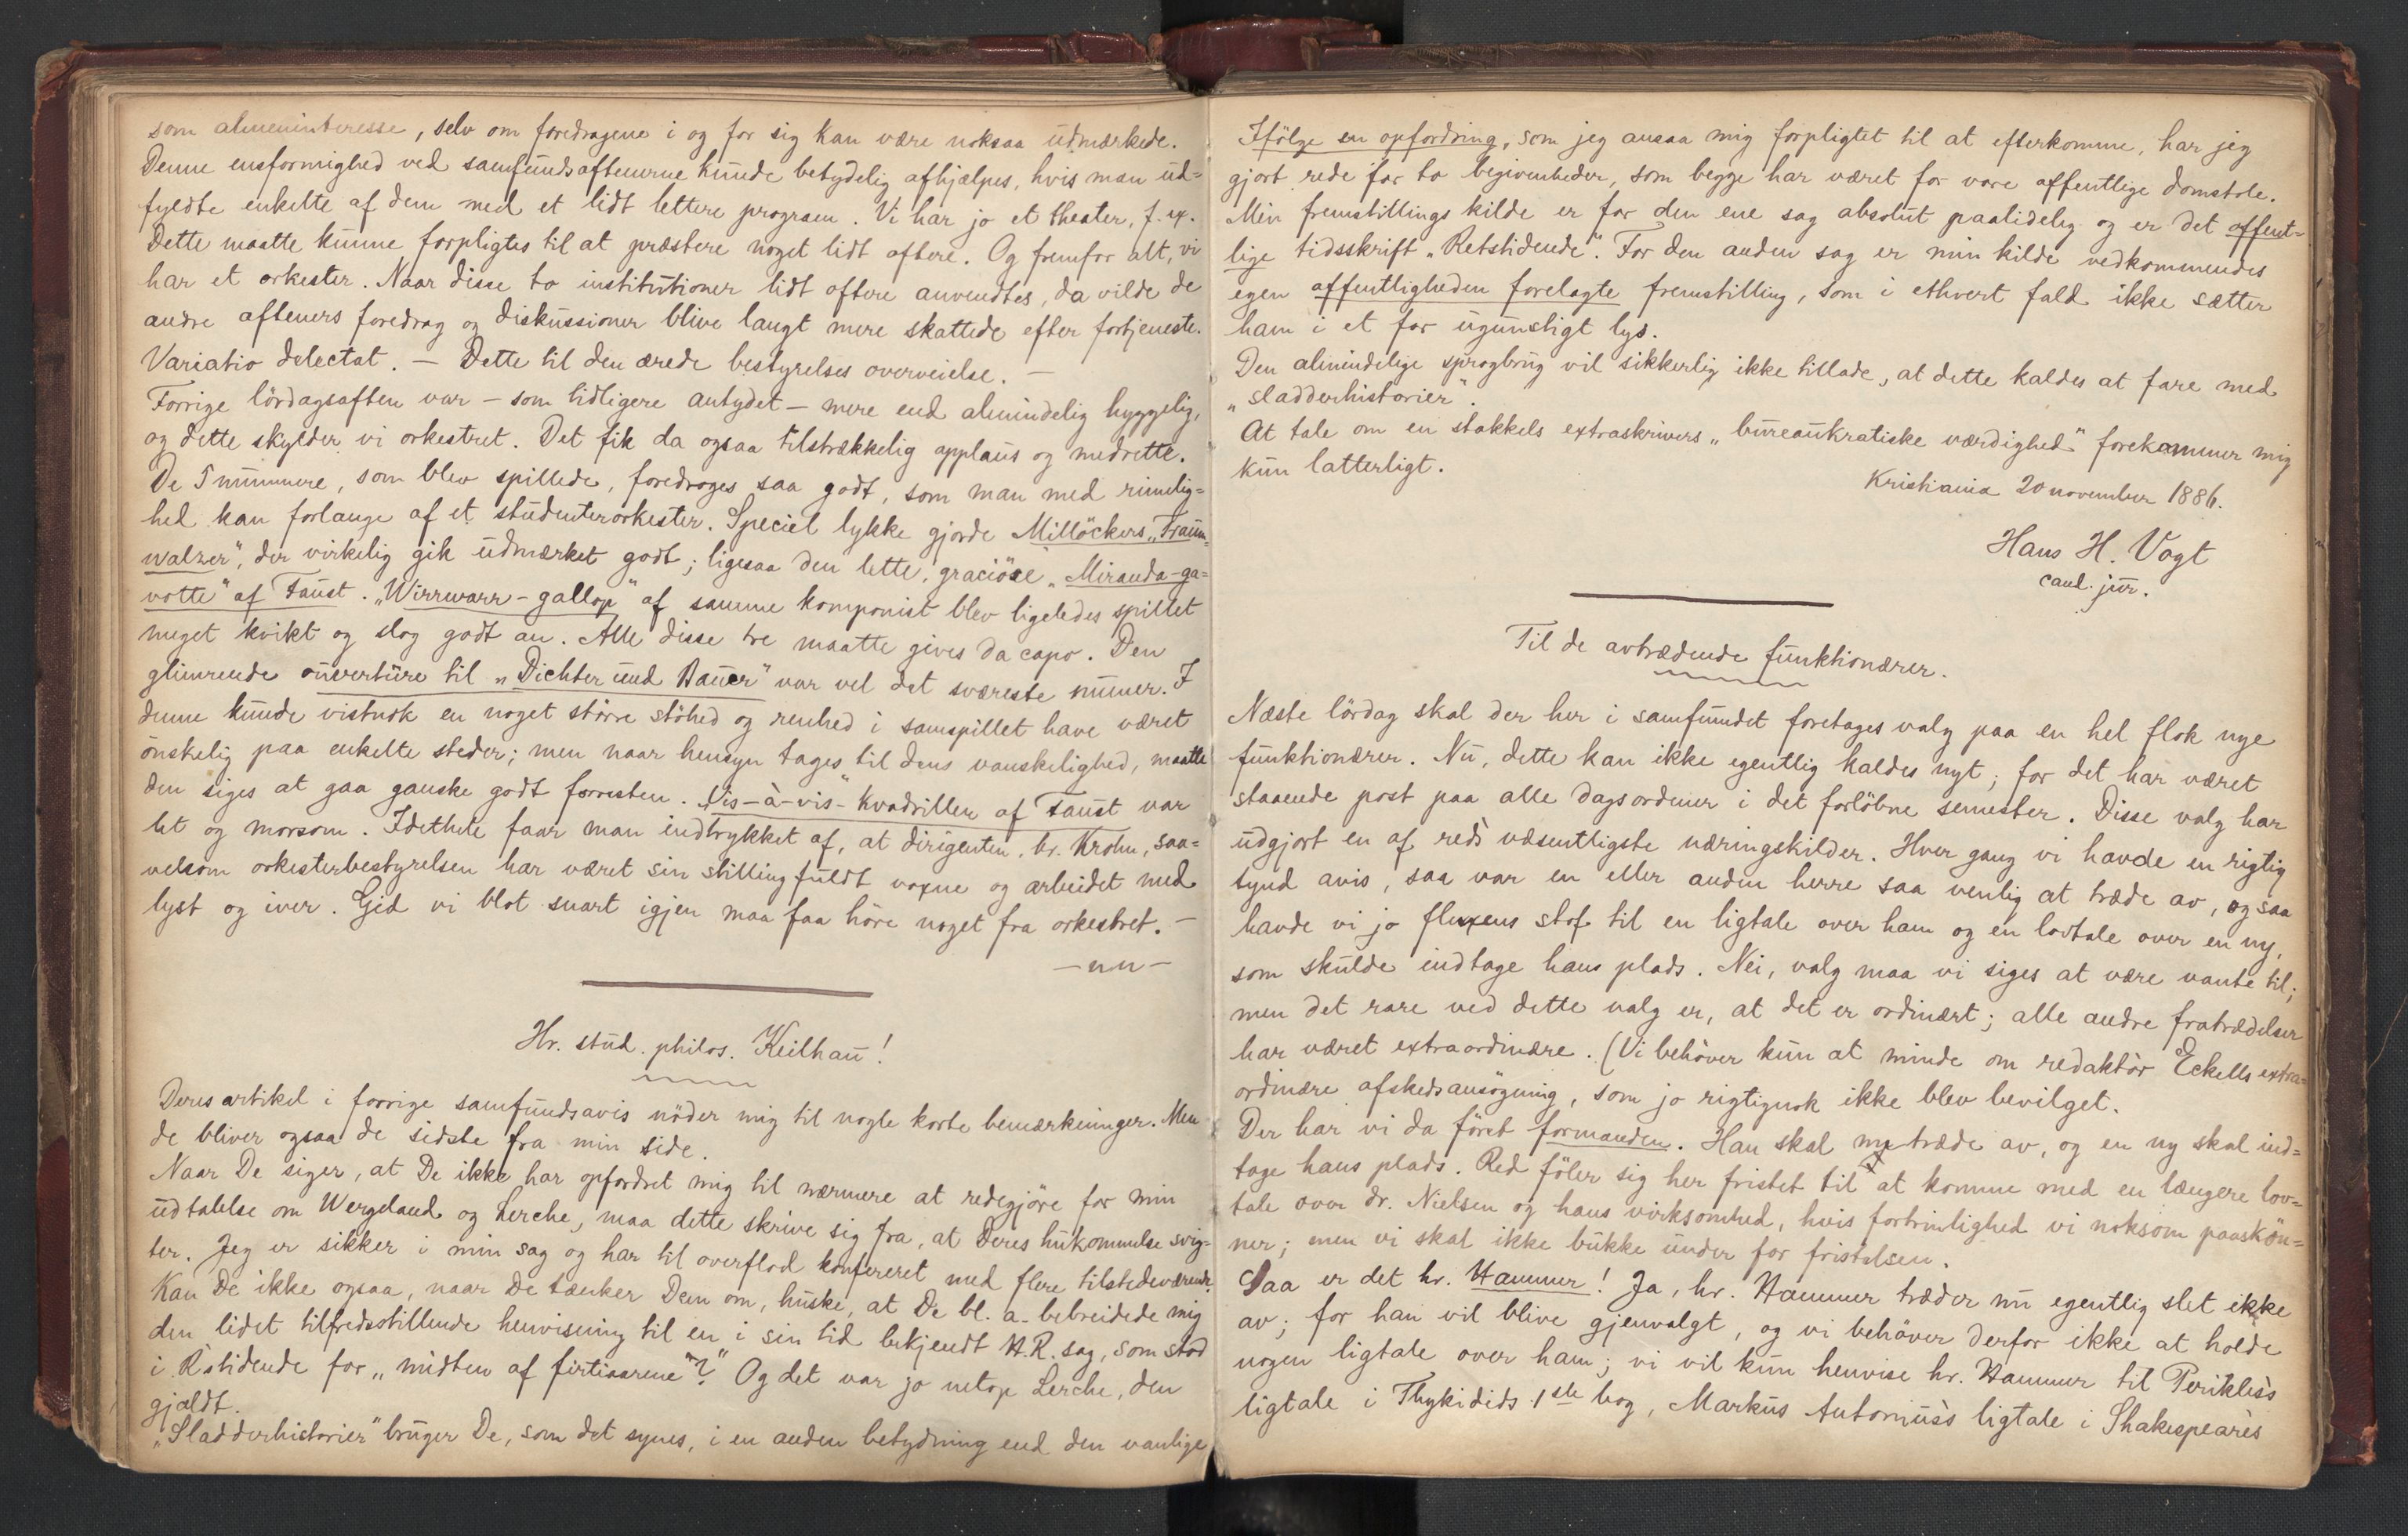 som almeninteresse, selv om foredragene i og for sig kan være noksaa udmærkede.
Denne ensformighed ved samfundsaftenerne kunde betydelig afhjælpes, hvis man ud=
fyldte enkelte af dem med et lidt lettere program. Vi har jo et theater, f. ex.
Dette maatte kunne forpligtes til at præstere noget lidt oftere. Og fremfor alt, vi
har et orkester. Naar disse to institutioner lidt oftere anvendtes, da vilde de
andre afteners foredrag og diskussioner blive langt mere skattede efter fortjeneste.
Variatio delectat. — Dette til den ærede bestyrelses overveielse. —
Forrige lördagsaften var — som tidligere antydet — mere end almindelig hyggelig,
og dette skylder vi orkestret. Det fik da ogsaa tilstrækkelig applaus og medrette.
De 5 nummere, som blev spillede, foredroges saa godt, som man med rimelig=
hed kan forlange af et studenterorkester. Speciel lykke gjorde Millöckers „Traum=
walzer", der virkelig gik udmærket godt; ligesaa den lette, graciöse „Miranda-ga=
votte" af Faust. „Wirrwarr-gallop" af samme komponist blev ligeledes spillet
meget kvikt og slog godt an. Alle disse tre maatte gives da capo. Den
glimrende ouverture til „Dichter und Bauer" var vel det sværeste numer. I
denne kunde vistnok en noget större stöhed og renhed i samspillet have været
önskelig paa enkelte steder; men naar hensyn tages til dens vanskelighed, maatte
den siges at gaa ganske godt forresten. „Vis-à-vis"-Kvadrillen af Faust var
let og morsom. Idethele faar man indtrykket af, at dirigenten, hr. Krohn, saa=
velsom orkesterbestyrelsen har været sin stilling fuldt voxne og arbeidet med
lyst og iver. Gid vi blot snart igjen maa faa höre noget fra orkestret. —
— nn —
Hr. stud. philos. Keilhau!
Deres artikel i forrige samfundsavis nöder mig til nogle korte bemærkninger. Men
de bliver ogsaa de sidste fra min side.
Naar De siger, at De ikke har opfordret mig til nærmere at redegjöre for min
udtalelse om Wergeland og Lerche, maa dette skrive sig fra, at Deres hukommelse svig=
ter. Jeg er sikker i min sag og har til overflod konfereret med flere tilstedeværende.
Kan De ikke ogsaa, naar De tænker Dem om, huske, at De bl. a. bebreidede mig
den lidet tilfredsstillende henvisning til en i sin tid bekjendt H.R. sag, som stod
i R'stidende for „midten af firtiaarene"? Og det var jo netop Lerche, den
gjældt.
„Sladderhistorier" bruger De, som det synes, i en anden betydning end den vanlige
Ifölge en opfordring, som jeg ansaa mig forpligtet til at efterkomme, har jeg
gjort rede for to begivenheder, som begge har været for vore offentlige domstole.
Min fremstillings kilde er for den ene sag absolut paalidelig og er det offent=
lige tidsskrift „Retstidende". For den anden sag er min kilde vedkommendes
egen offentligheden forelagte fremstilling, som i ethvert fald ikke sætter
ham i et for ugunstigt lys.
Den almindelige sprogbrug vil sikkerlig ikke tillade, at dette kaldes at fare med
„sladderhistorier".
At tale om en stakkels extraskrivers „bureaukratiske værdighed" forekommer mig
kun latterligt.
Kristiania 20 november 1886.
Hans H. Vogt
cand. jur.
Til de avtrædende funktionærer.
Næste lördag skal der her i samfundet foretages valg paa en hel flok nye
funktionærer. Nu, dette kan ikke egentlig kaldes nyt; for det har været
staaende post paa alle dagsordener i det forlöbne semester. Disse valg har
udgjort en af red's væsentligste næringskilder. Hver gang vi havde en rigtig
tynd avis, saa var en eller anden herre saa venlig at træde av, og saa
havde vi jo fluxens stof til en ligtale over ham og en lovtale over en ny,
som skulde indtage hans plads. Nei, valg maa vi siges at være vante til;
men det rare ved dette valg er, at det er ordinært; alle andre fratrædelser
har været extraordinære. (Vi behöver kun at minde om redaktör Eckells extra=
ordinære afskedsansögning, som jo rigtignok ikke blev bevilget.
Der har vi da först formanden. Han skal træde av, og en ny skal ind=
tage hans plads. Red föler sig her fristet til at komme med en længere lov=
tale over dr. Nielsen og hans virksomhed, hvis fortrinlighed vi noksom paaskön=
ner; men vi skal ikke bukke under for fristelsen.
Saa er det hr. Hammer! Ja, hr. Hammer træder nu egentlig slet ikke
av; for han vil blive gjenvalgt, og vi behöver derfor ikke at holde
nogen ligtale over ham; vi vil kun henvise hr. Hammer til Perikles's
ligtale i Thykidids 1ste bog, Markus Antonius's ligtale i Shakespeare's